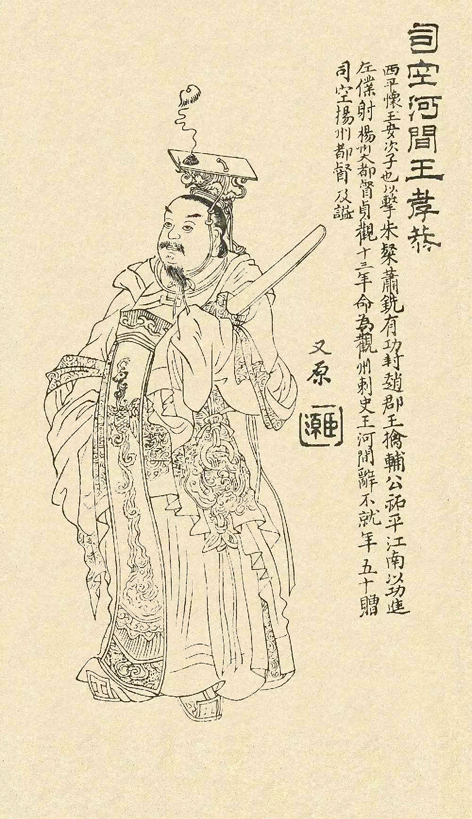 司空河間王孝恭
西平懷王安次子也以擊朱粲蕭銑有功封趙郡王擒輔公祏平江南以功進
左僕射楊州大都督貞觀十三年命為觀州刺史王河間辭不就年五十贈
司空揚州都督及諡
又原
臣源